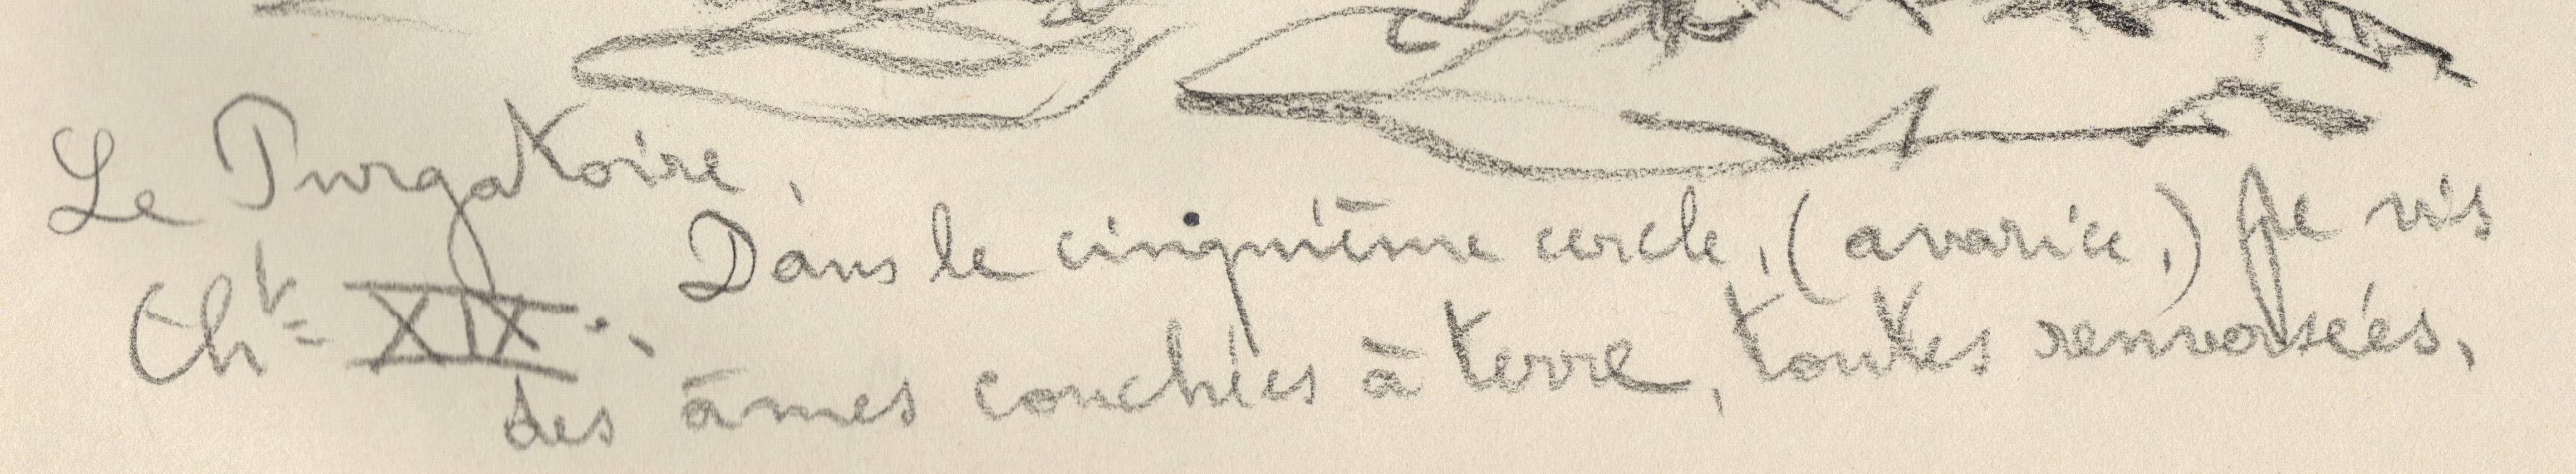 Le Purgatoire,
Cht= XIX.- Dans le cinquième cercle, (avarice,) je vis
des âmes couchées à terre, toutes renversées,